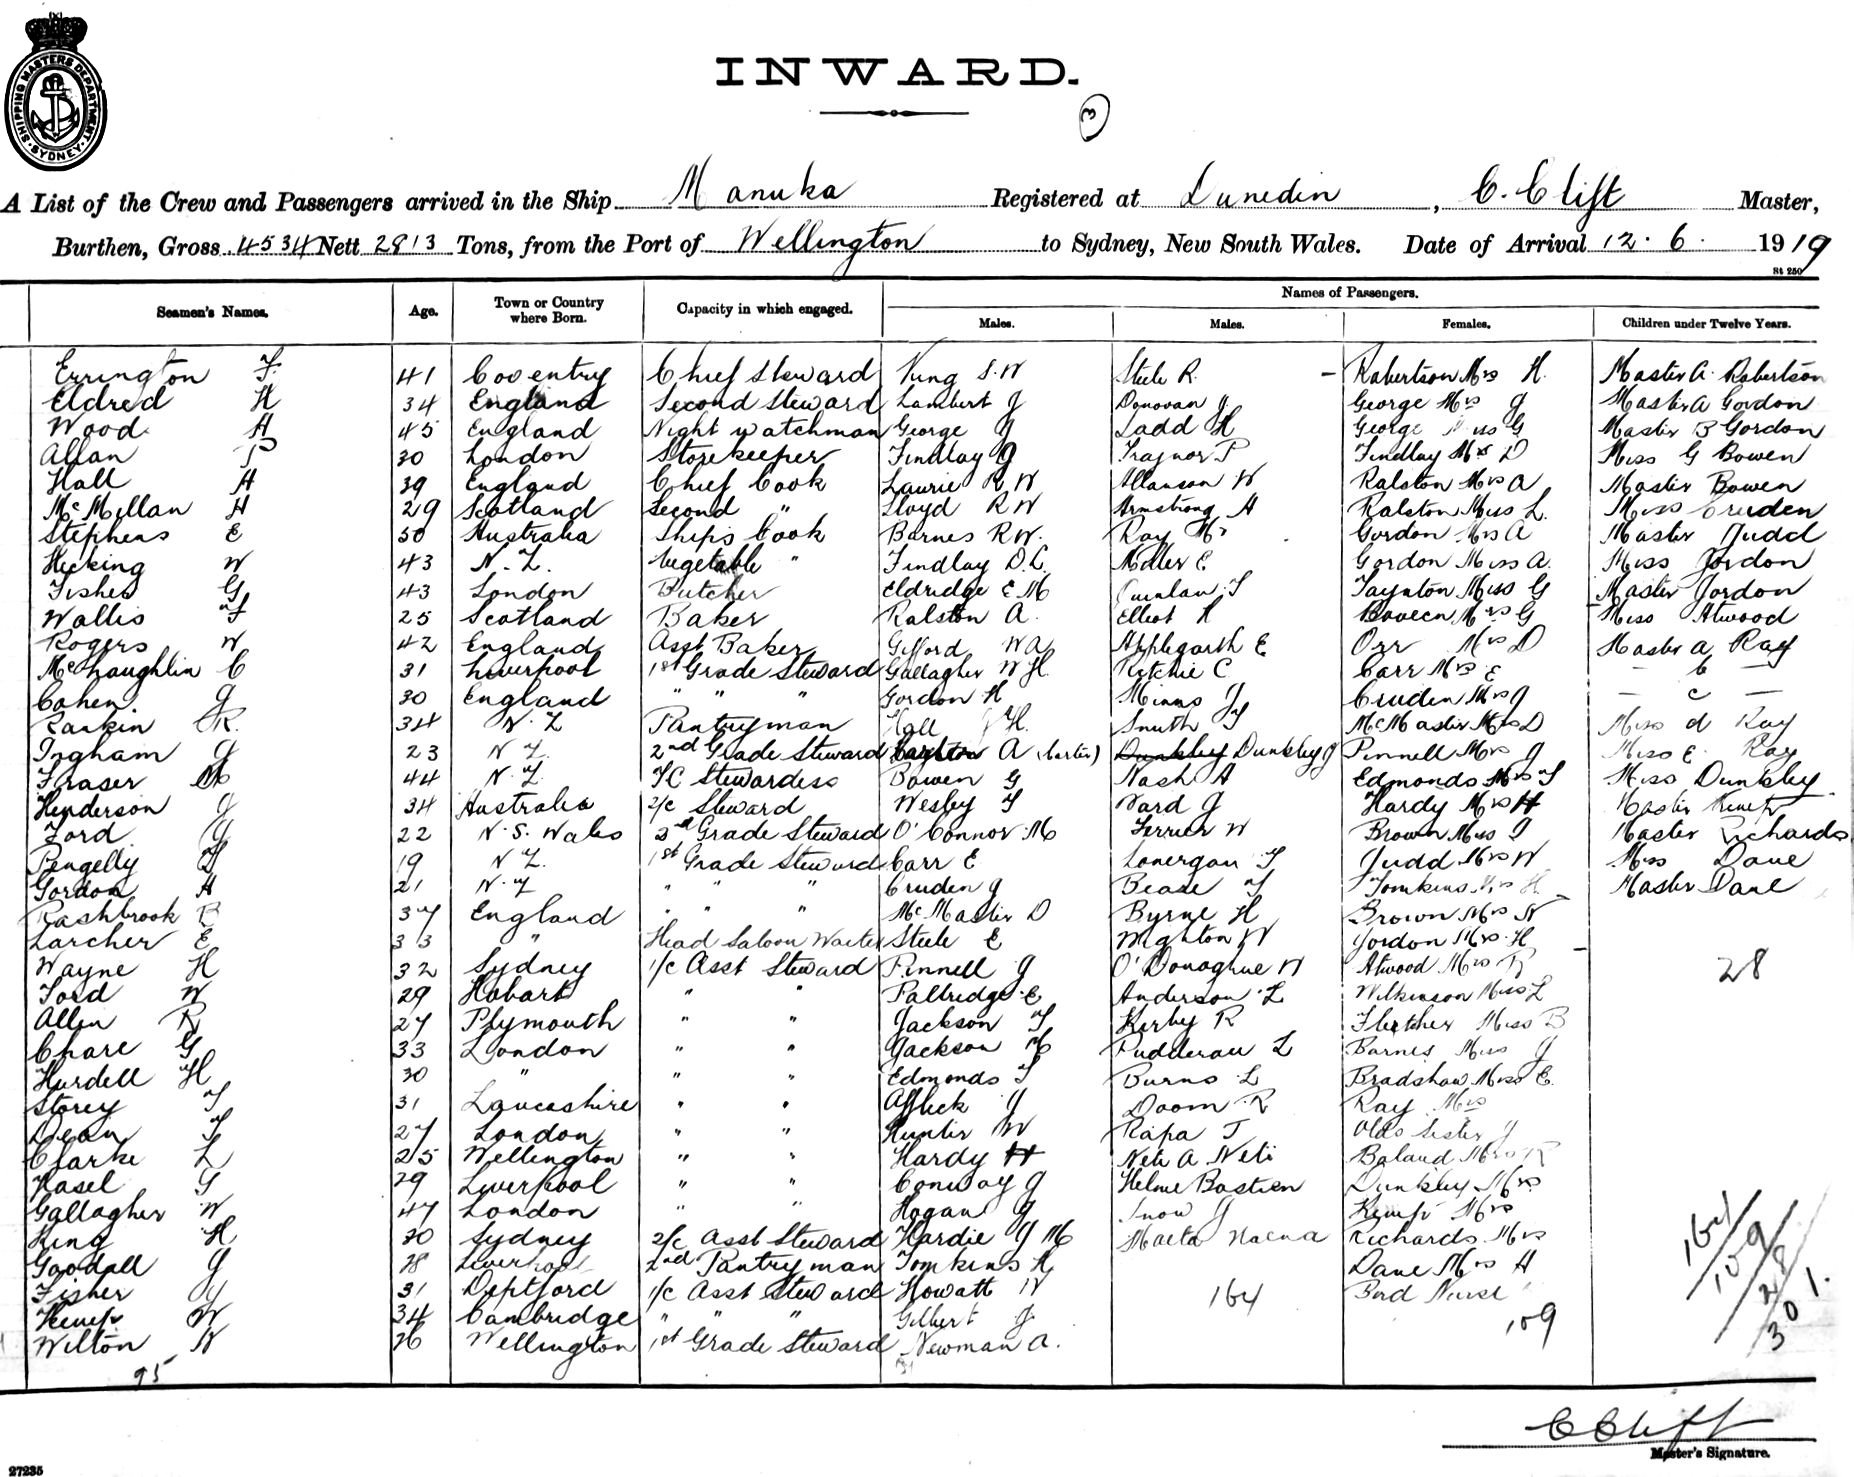 SHIPPING MASTERS DEPARTMENT
SYDNEY
INWARD.
3
A List of the Crew and Passengers arrived in the Ship Manuka Registered at Dunedin, C. Clift Master,
Burthen, Gross 4534 Nett 2813 Tons, from the Port of Wellington to Sydney, New South Wales. Date of Arrival 12. 6. 1919
St 250
Names of Passengers.
Seamen's Names. Age. Town or Country where Born. Capacity in which engaged. Males. Males. Females. Children under Twelve Years.
Errington F. 41 Coventry Chief Steward S. W Steele R. Robertson Mrs H. Master A. Robertson
Eldred H 34 England Second Steward Lambert J Donovan J George Mrs J Master A Gordon
Wood A 45 England Night watchman George J Ladd H George Miss G Master B Gordon
Allan P 30 London Storekeeper Findlay J Traynor P Findlay Mrs D Miss G Bowen
Hall A 39 England Chief Cook Laurie R W Allanson W Ralston Mrs A Master Bowen
McMillan H 29 Scotland Second " Lloyd R W Armstrong A Ralston Miss L. Miss Cruden
Stephens E 50 Australia Ships Cook Barnes R W. Ray Mr Gordon Mrs A Master Judd
Hicking W 43 N. Z. Vegetable " Findlay D. C. Adler E Gordon Miss A. Miss Jordon
Fisher G 43 London Butcher Eldridge E M Quinlan T Taynton Miss G Master Jordon
Wallis F 25 Scotland Baker Ralston A. Elliot H Bowen Mrs G Miss Atwood
Rogers W 42 England Asst Baker Gifford W A Applegarth E Orr Mrs D Master A Ray
McLaughlin C 31 Liverpool 1st Grade Steward Gallagher W H. Ritchie C Carr Mrs E — C —
Cohen J 30 England " " " Gordon H Minns J Cruden Mrs J — C —
Rankin R. 34 N. Z Pantryman Hall H. Smith F McMaster Mrs D Miss d Ray
Ingham J 23 N Z. 2nd Grade Steward A Dunkley Dunkley J Pinnell Mrs J Miss E. Ray
Fraser M 44 N. Z 1C Stewardess Bowen G Nash A Edmonds Mrs F Miss Dunkley
Henderson J 34 Australia 2/c Steward Wesby F Ward J Hardy Mrs H Master
Ford G 22 N. S. Wales 2nd Grade Steward O'Connor M Ferrier W Brown Miss J Master Richards
Pengelly 19 N Z. 1st Grade Steward Carr E Lonergan T Judd Mrs W Miss Dane
Gordon A 21 N. Z " " " Cruden J Beade F Tomkins Mrs H Master Dane
Rashbrook B 37 England " " " McMaster D Byrne H Brown Mrs N
Larcher E 33 " Head Saloon Waiter Steele E Wighton W Jordon Mrs H
Wayne H 32 Sydney 1/c Asst Steward Pinnell J O'Donaghue W Atwood Mrs R 28
Ford W 29 Hobart " " Palbridge E Anderson L Wilkinson Miss L
Allen R 27 Plymouth " " Jackson F Kerby R Fletcher Miss B
Chare G 33 London " " Jackson M L Barnes Miss J
Hurdell H 30 " " " Edmonds F Burns L Bradshaw Miss E.
Storey F 31 Lancashire " " Affleck J Doom R Ray Mrs
Dean F 27 London " " Hunter W Rapa T Olds Sister J
Clarke L 25 Wellington " " Hardy H Neti A Neti Boland Mrs R
Hasel G 29 Liverpool " " Conway J Helme Bastien Dunkley Mrs
Gallagher W 47 London " " Hogan J Snow J Kemp Mrs
King H 30 Sydney 2/c Asst Steward Hardie J M Maeta Richards Mrs
Goodall J 18 Liverpool 2nd Pantryman Tomkins H Dane Mrs H
Fisher 31 Deptford 1/c Asst Steward Howatt W 164 Bird Nurse
Kemp W 34 Cambridge " " " Gilbert J. 109
Wilton W 26 Wellington 1st Grade Steward Newman A.
95
164
109
28
301.
C Clift
Master's Signature.
27235